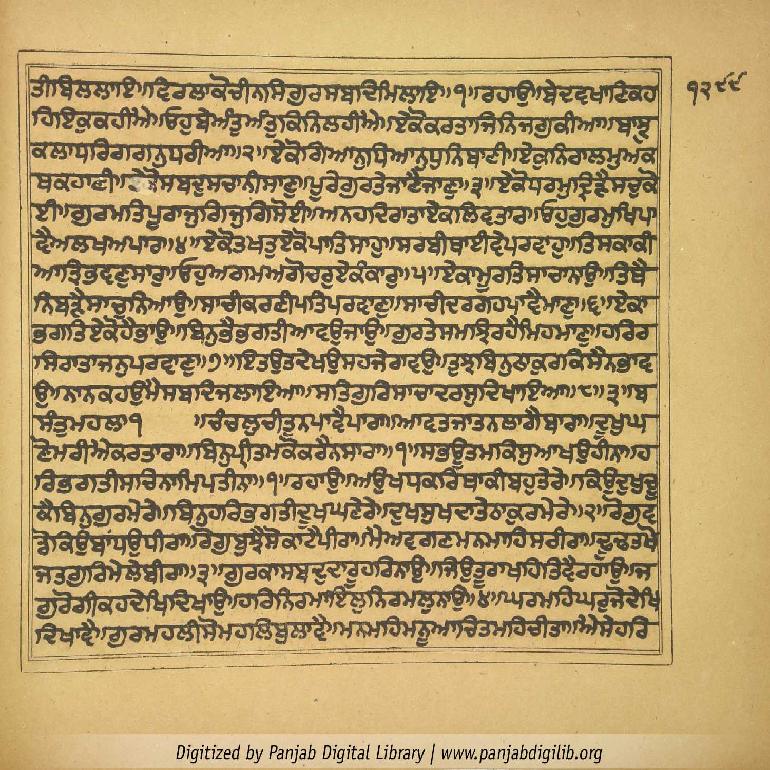 ਤੀਬਿਲਲਾਇ॥ਵਿਰਲਾਕੋਚੀਨਸਿਗੁਰਸਬਦਿਮਿਲਾਇ॥੧॥ਰਹਾਉ॥ਬੇਦਵਖਾਣਿਕਹ ੧੨੯੯
ਹਿਇਕੁਕਹੀਐ॥ਓਹੁਬੇਅੰਤੁਅੰਤੁਕਿਨਿਲਹੀਐ॥ਏਕੋਕਰਤਾਜਿਨਿਜਗੁਕੀਆ॥ਬਾਝੁ
ਕਲਾਧਰਿਗਗਨੁਧਰੀਆ॥੨॥ਏਕੋਗਿਆਨੁਧਿਆਨੁਧੁਨਿਬਾਣੀ॥ਏਕੁਨਿਰਾਲਮੁਅਕ
ਥਕਹਾਣੀ॥ਏਕੋਸਬਦੁਸਚਾਨੀਸਾਣੁ॥ਪੂਰੇਗੁਰਤੇਜਾਣੈਜਾਣੁ॥੩॥ਏਕੋਧਰਮੁਦ੍ਰਿੜੈਸਚੁਕੋ
ਈ॥ਗੁਰਮਤਿਪੂਰਾਜੁਗਿਜੁਗਿਸੋਈ॥ਅਨਹਦਿਰਾਤਾਏਕਲਿਵਤਾਰ॥ਓਹੁਗੁਰਮੁਖਿਪਾ
ਵੈਅਲਖਅਪਾਰ॥੪॥ਏਕੋਤਖਤੁਏਕੋਪਾਤਿਸਾਹੁ॥ਸਰਬੀਥਾਈਵੇਪਰਵਾਹੁ॥ਤਿਸਕਾਕੀ
ਆਤ੍ਰਿਭਵਣੁਸਾਰੁ॥ਓਹੁਅਗਮਅਗੋਚਰੁਏਕੰਕਾਰੁ॥੫॥ਏਕਾਮੂਰਤਿਸਾਚਾਨਾਉ॥ਤਿਥੈ
ਨਿਬੜੈਸਾਚੁਨਿਆਉ॥ਸਾਚੀਕਰਣੀਪਤਿਪਰਵਾਣੁ॥ਸਾਚੀਦਰਗਹਪਾਵੈਮਾਣੁ॥੬॥ਏਕਾ
ਭਗਤਿਏਕੋਹੈਭਾਉ॥ਬਿਨੁਭੈਭਗਤੀਆਵਉਜਾਉ॥ਗੁਰਤੇਸਮਝਿਰਹੈਮਿਹਮਾਣੁ॥ਹਰਿਰ
ਸਿਰਾਤਾਜਨੁਪਰਵਾਣੁ॥੭॥ਇਤਉਤਦੇਖਉਸਹਜੇਰਾਵਉ॥ਤੁਝਬਿਨੁਠਾਕੁਰਕਿਸੈਨਭਾਵ
ਉ॥ਨਾਨਕਹਉਮੈਸਬਦਿਜਲਾਇਆ॥ਸਤਿਗੁਰਿਸਾਚਾਦਰਸੁਦਿਖਾਇਆ॥੮॥੩॥ਬ
ਸੰਤੁਮਹਲਾ੧ ॥ਚੰਚਲੁਚੀਤੁਨਪਾਵੈਪਾਰਾ॥ਆਵਤਜਾਤਨਲਾਗੈਬਾਰਾ॥ਦੂਖੁਘ
ਣੋਮਰੀਐਕਰਤਾਰਾ॥ਬਿਨੁਪ੍ਰੀਤਮਕੋਕਰੈਨਸਾਰਾ॥੧॥ਸਭਊਤਮਕਿਸੁਆਖਉਹੀਨਾ॥ਹ
ਰਿਭਗਤੀਸਾਚਿਨਾਮਿਪਤੀਨਾ॥੧॥ਰਹਾਉ॥ਅਉਖਧਕਰਿਥਾਕੀਬਹੁਤੇਰੇ॥ਕਿਉਦੁਖੁਚੂ
ਕੈਬਿਨੁਗੁਰਮੇਰੇ॥ਬਿਨੁਹਰਿਭਗਤੀਦੂਖਘਣੇਰੇ॥ਦੁਖਸੁਖਦਾਤੇਠਾਕੁਰਮੇਰੇ॥੨॥ਰੋਗੁਵ
ਡੋਕਿਉਬਾਂਧਉਧੀਰਾ॥ਰੋਗੁਬੁਝੈਸੋਕਾਟੈਪੀਰਾ॥ਮੈਅਵਗਣਮਨਮਾਹਿਸਰੀਰਾ॥ਢੂਢਤਖੋ
ਜਤਗੁਰਿਮੇਲੇਬੀਰਾ॥੩॥ਗੁਰਕਾਸਬਦੁਦਾਰੂਹਰਿਨਾਉ॥ਜਿਉਤੂਰਾਖਹਿਤਿਵੈਰਹਾਉ॥ਜ
ਗੁਰੋਗੀਕਹਦੇਖਿਦਿਖਾਉ॥ਹਰਿਨਿਰਮਾਇਲੁਨਿਰਮਲੁਨਾਉ॥੪॥ਘਰਮਹਿਘਰੁਜੋਦੇਖਿ
ਦਿਖਾਵੈ॥ਗੁਰਮਹਲੀਸੋਮਹਲਿਬੁਲਾਵੈ॥ਮਨਮਹਿਮਨੂਆਚਿਤਮਹਿਚੀਤਾ॥ਐਸੇਹਰਿ
Digitized by Panjab Digital Library | www.panjabdigilib.org